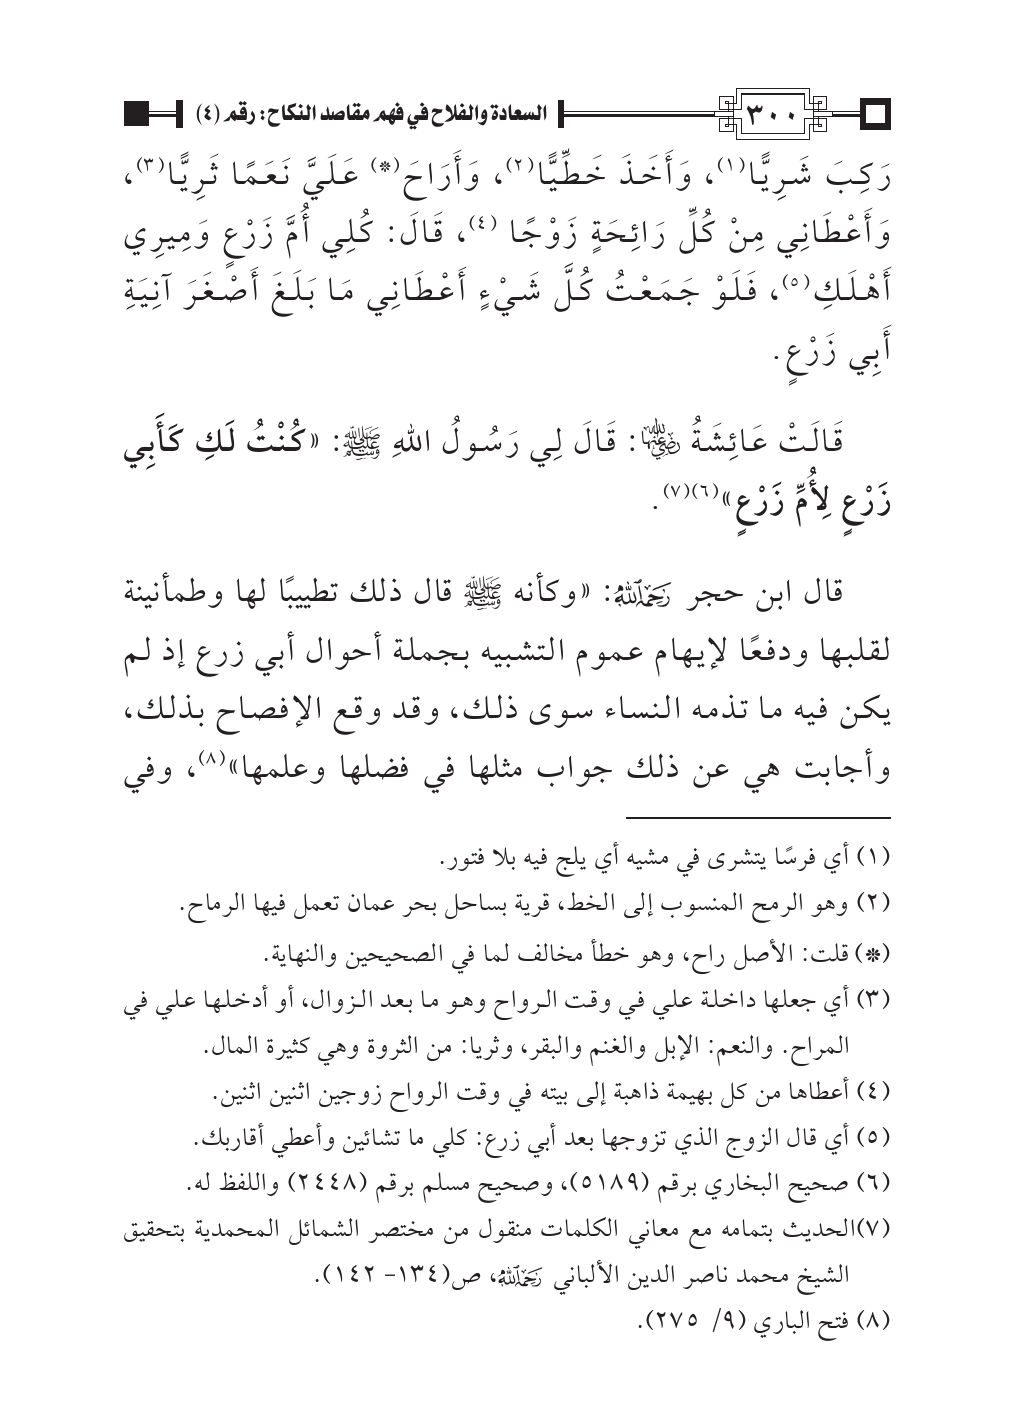 ٣٠٠ السعادة والفلاح في فهم مقاصد النكاح: رقم (٤)
رَكِبَ شَرِيًّا(١)، وَأَخَذَ خَطِّيًّا(٢)، وَأَرَاحَ(*) عَلَيَّ نَعَمًا ثَرِيًّا(٣)،
وَأَعْطَانِي مِنْ كُلِّ رَائِحَةٍ زَوْجًا (٤)، قَالَ: كُلِي أُمَّ زَرْعٍ وَمِيرِي
أَهْلَكِ(٥)، فَلَوْ جَمَعْتُ كُلَّ شَيْءٍ أَعْطَانِي مَا بَلَغَ أَصْغَرَ آنِيَةِ
أَبِي زَرْعٍ.
قَالَتْ عَائِشَةُ رضي الله عنها: قَالَ لِي رَسُولُ اللهِ ﷺ: «كُنْتُ لَكِ كَأَبِي
زَرْعٍ لِأُمِّ زَرْعٍ»(٦)(٧).
قال ابن حجر رحمه الله: «وكأنه ﷺ قال ذلك تطييبًا لها وطمأنينة
لقلبها ودفعًا لإيهام عموم التشبيه بجملة أحوال أبي زرع إذ لم
يكن فيه ما تذمه النساء سوى ذلك، وقد وقع الإفصاح بذلك،
وأجابت هي عن ذلك جواب مثلها في فضلها وعلمها»(٨)، وفي
(١) أي فرسًا يتشرى في مشيه أي يلج فيه بلا فتور.
(٢) وهو الرمح المنسوب إلى الخط، قرية بساحل بحر عمان تعمل فيها الرماح.
(*) قلت: الأصل راح، وهو خطأ مخالف لما في الصحيحين والنهاية.
(٣) أي جعلها داخلة علي في وقت الرواح وهو ما بعد الزوال، أو أدخلها علي في
المراح. والنعم: الإبل والغنم والبقر، وثريا: من الثروة وهي كثيرة المال.
(٤) أعطاها من كل بهيمة ذاهبة إلى بيته في وقت الرواح زوجين اثنين اثنين.
(٥) أي قال الزوج الذي تزوجها بعد أبي زرع: كلي ما تشائين وأعطي أقاربك.
(٦) صحيح البخاري برقم (٥١٨٩)، وصحيح مسلم برقم (٢٤٤٨) واللفظ له.
(٧)الحديث بتمامه مع معاني الكلمات منقول من مختصر الشمائل المحمدية بتحقيق
الشيخ محمد ناصر الدين الألباني رحمه الله، ص(١٣٤- ١٤٢).
(٨) فتح الباري (٩/ ٢٧٥).